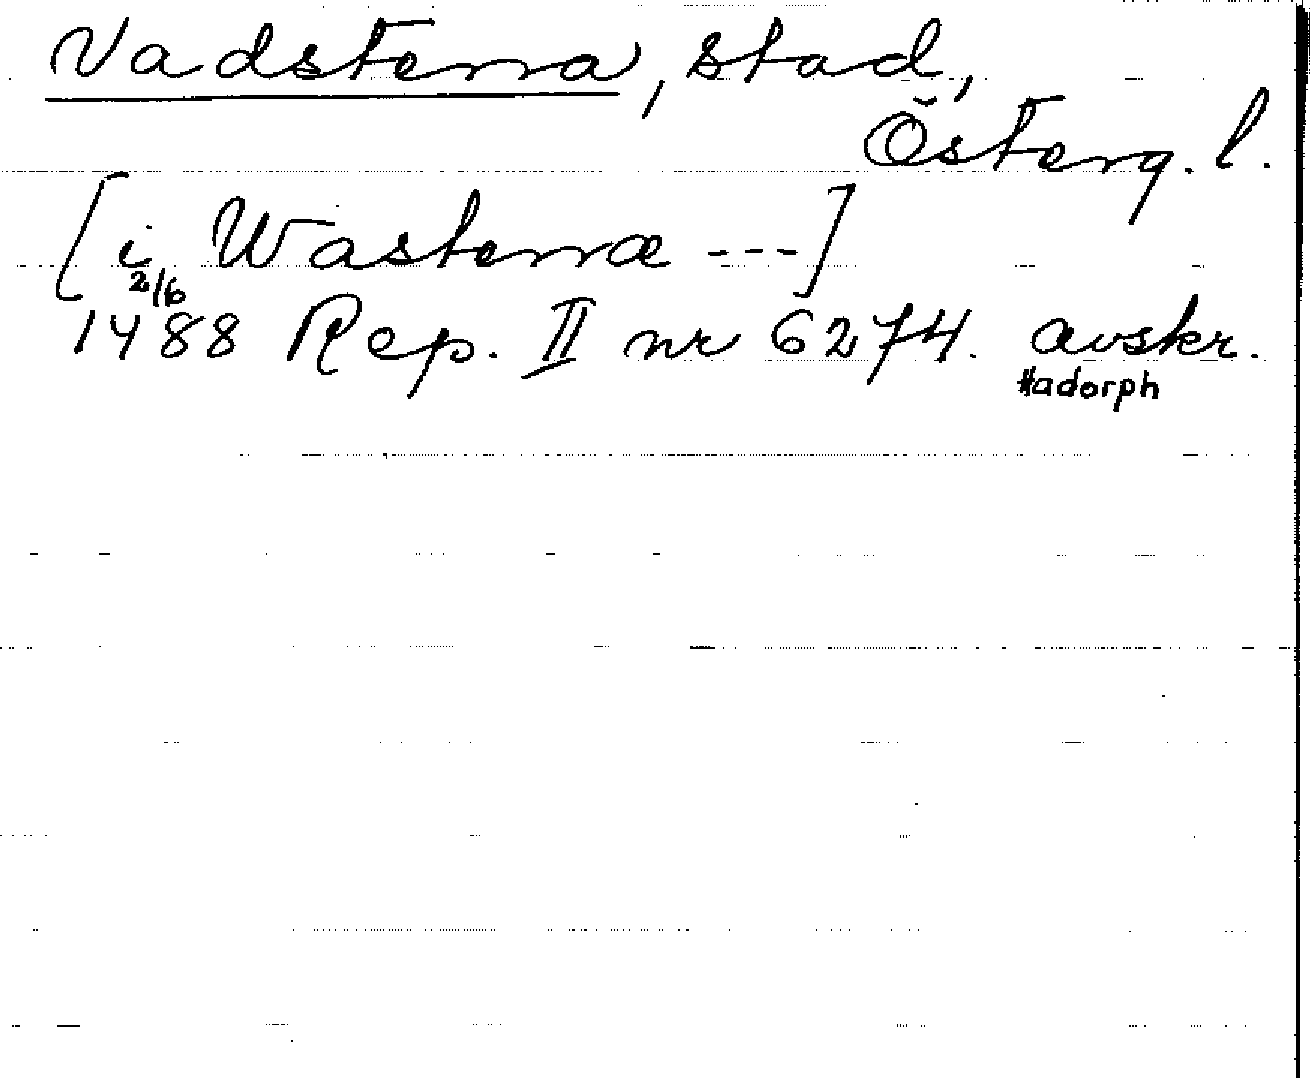 Vadstena, stad,
Österg. l.
[i Wastenæ ---]
2/6
1488 Rep. II nr 6274. avskr.
Hadorph